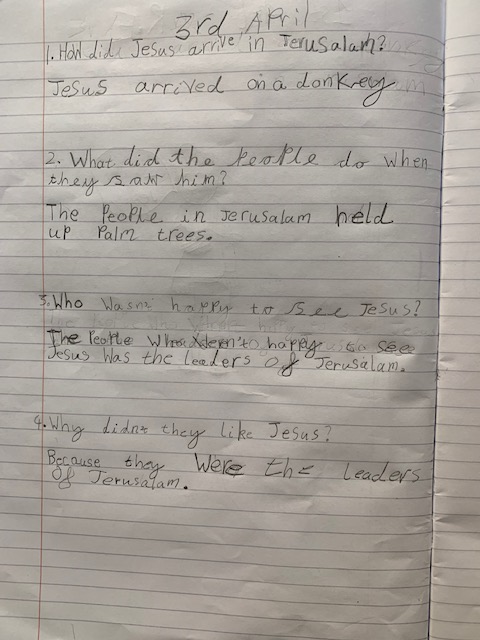 3rd April
1. How did Jesus arrive in Jerusalam?
Jesus arrived on a donkey
2. What did the People do when
they saw him?
The People in Jerusalam held
up Palm trees.
3. Who wasnt happy to see Jesus?
The People Who happy to see
Jesus was the leaders of Jerusalam.
4. Why didnt they like Jesus?
Because they were the leaders
of Jerusalam.